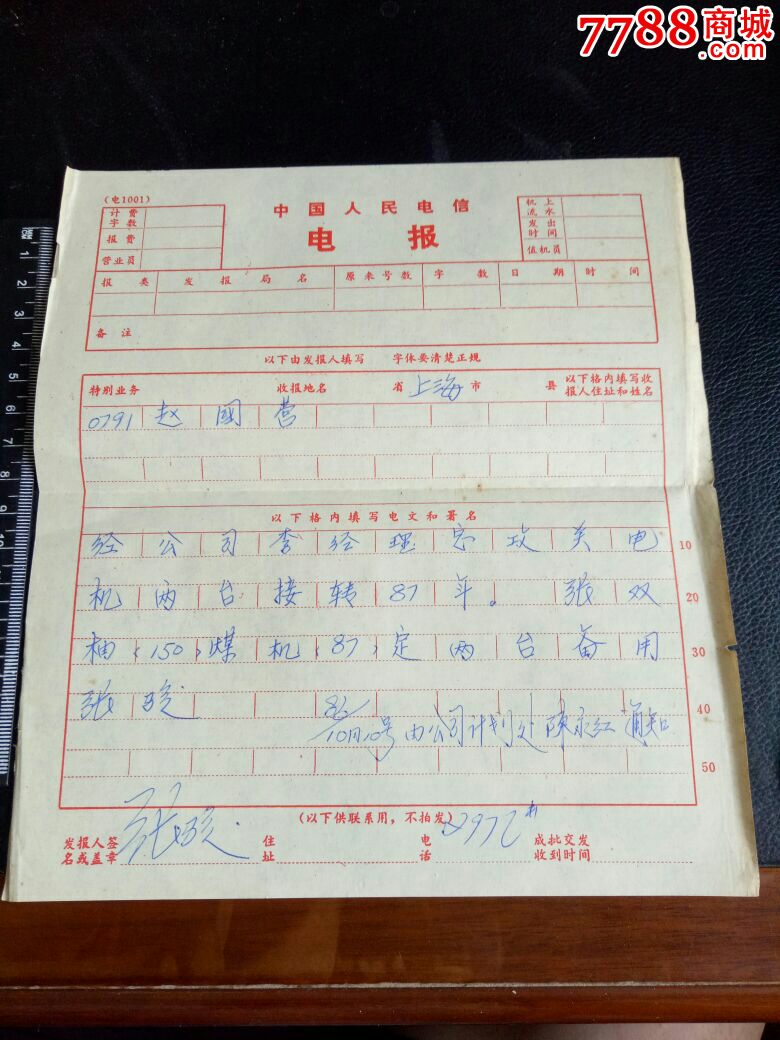 7788商城
.com
(电1001)
中国人民电信
电报
计费字数
报费
营业员
机上流水
发出时间
值机员
报类 发报局名 原来号数 字数 日期 时间
备注
以下由发报人填写 字体要清楚正规
特别业务 收报地名 省 上海 市 县 以下格内填写收报人住址和姓名
0791 赵國营
以下格内填写电文和署名
经公司李经理忠攻关电 10
机两台接转87年。张双 20
柚(150)煤机(87)定两台备用 30
张骏 40
86/10月10号由公司计划处陈永红通知
50
(以下供联系用,不拍发)
发报人签名或盖章 张骏 住址 电话 成批交发收到时间
8 9 10 11 12